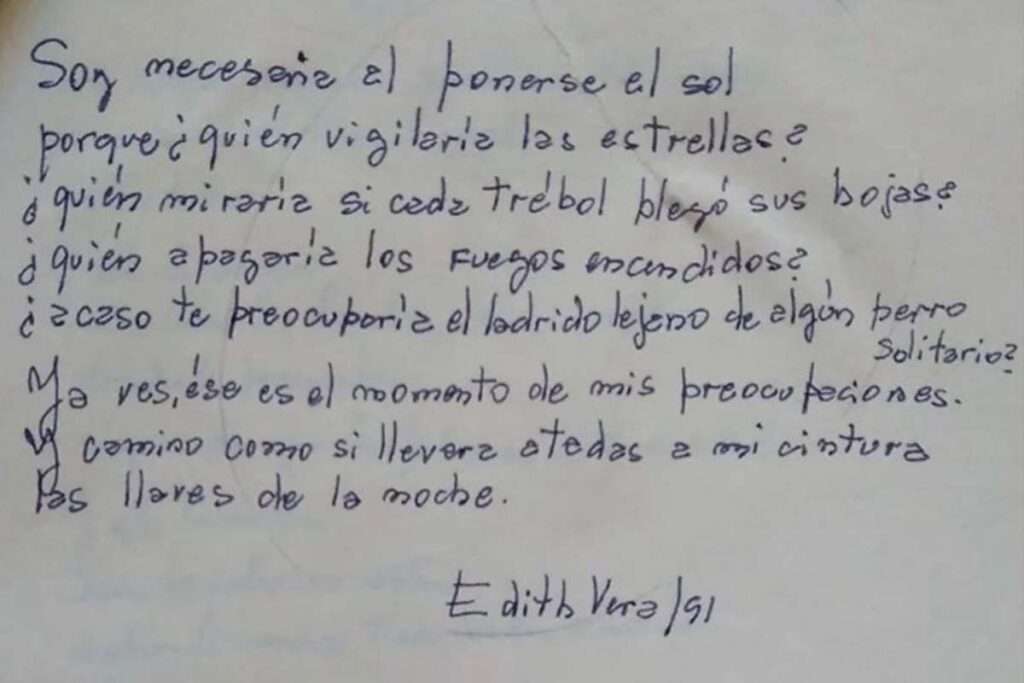 Soy necesaria al ponerse el sol
porque ¿quién vigilaría las estrellas?
¿quién miraría si cada trébol plegó sus hojas?
¿quién apagaría los fuegos encendidos?
¿acaso te preocuparía el ladrido lejano de algún perro
solitario?
Ya ves, ése es el momento de mis preocupaciones.
Y camino como si llevara atadas a mi cintura
las llaves de la noche.
Edith Vera/91